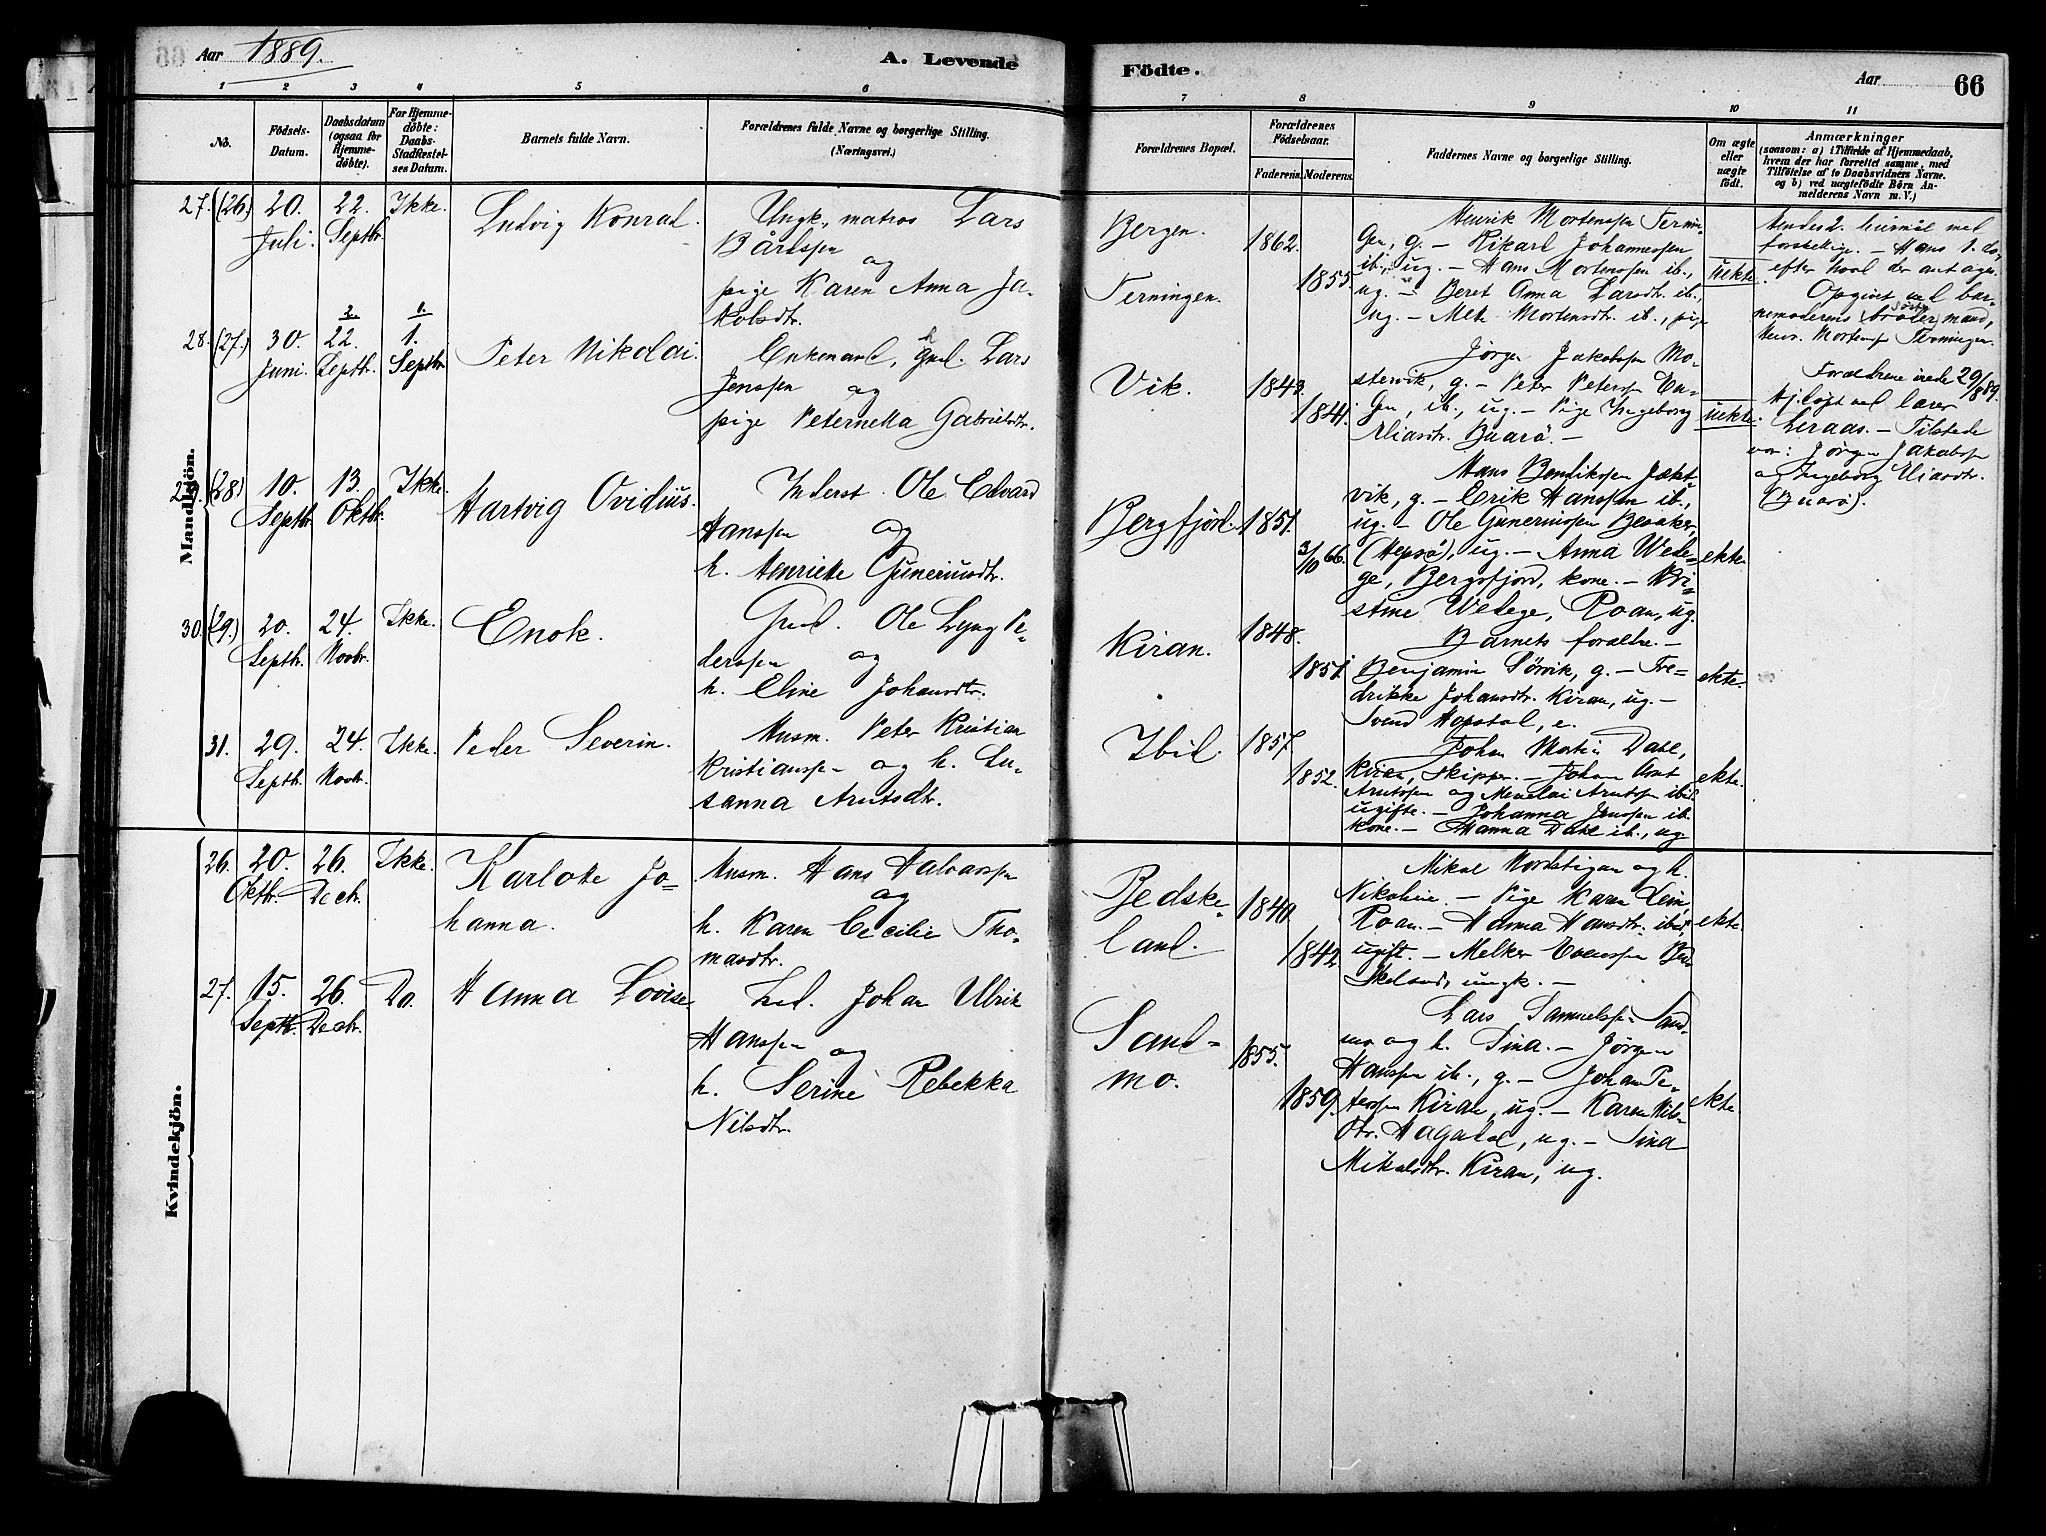 Aar 1889.
A. Levende Födte.
Aar 66
1 2 3 4 5 6 7 8 9 10 11
No.
Födsels-
Datum.
Daabsdatum
(ogsaa for
Hjemme-
døbte).
For Hjemme-
døbte:
Daabs-
Stadfæstel-
ses Datum.
Barnets fulde Navn.
Forældrenes fulde Navne og borgerlige Stilling.
(Næringsvei.)
Forældrenes Bopæl.
Forældrenes
Födselsaar.
Faderens. Moderens.
Faddernes Navne og borgerlige Stilling.
Om ægte
eller
uægte
födt.
Anmærkninger
(saasom: a) i Tilfælde af Hjemmedaab,
hvem der har forrettet samme, med
Tilföielse af to Daabsvidners Navne.
og b) ved uægtefödte Börn An-
melderens Navn m. V.)
Mandkjön.
27. (26.) 20. Juli. 22. Septbr. Ikke.
Ludvig Konrad.
Ungk., matros Lars
Bårdssen
og
pige Karen Anna Ja-
kobsdtr.
Bergen.
Terningen.
1862.
1855.
Henrik Mortenssen Ternin-
gen, g. — Rikard Johannessen
ib., ug. — Hans Mortenssen ib.,
ug. — Beret Anna Larsdtr. ib.,
ug. — Mortensdtr. ib., pige
uekte.
Hendes 2. leiermål med
forskellige. — Hans 1. do.,
efter hvad der antages.
Opgivet ved bar-
nemoderens søsters mand,
Henr. Mortenss. Terningen.
28. (27.) 30. Juni. 2. 22. Septbr. 1. 1. Septbr.
Peter Nikolai.
Enkemand, f Gmd. Lars
Jenssen
og
pige Peternella Gabrielsdtr.
Vik.
1843.
1841.
Jørgen Jakobssen Mo-
stervik, g. — Peter Peterssen En-
gen, ib., ug. — Pige Ingeborg
Eliasdtr. Buarö. —
uekte.
Forældrene viede 29/8 89.
Hj.döpt ved lærer
Leraas. — Tilstede
var: Jørgen Jakobssen
og Ingeborg Eliasdtr.
(Buarö).
29. (28) 10. Septbr. 13. Oktbr. Ikke.
Hartvig Ovidius.
Inderst Ole Edvard
Hanssen
og
h. Henriette Guneriusdtr.
Bergfjord.
1851.
3/10 66.
Hans Bendikssen Jækt-
vik, g. — Erik Hanssen ib.,
ug. — Ole Guneriussen Besaker,
(Hepsö), ug. — Anna Wede-
ge, Bergsfjord, kone. — Kri-
stine Wedege, Roan, ug.
ekte.
30. (29.) 20. Septbr. 24. Novbr. Ikke.
Enok.
Gmd. Ole Lyng Pe-
derssen
og
h. Eline Johansdtr.
Kiran.
1848.
1851.
Barnets forældre. —
Benjamin Sörvik, g. — Fre-
drikke Johansdtr. Kiran, ug. —
Svend Hopstad, e.
ekte.
31. 29. Septbr. 24. Novbr. Ikke.
Peder Severin.
Husm. Peter Kristian
Kristianssen og h. Su-
sanna Arntsdtr.
Ibid.
1857.
1852.
Johan Martin Dahl,
Kiran, skipper. — Johan Arnt
Arntssen og Menelai Arntssen ibid.
ugifte. — Johanna Jenssen ib.
kone. — Hanna Dahl ib., ug.
ekte.
Kvindekjön.
26. 20. Oktbr. 26. Decbr. Ikke.
Karlotte Jo-
hanna.
Husm. Hans Halvorssen
og
h. Karen Cecilie Tho-
masdtr.
Bedske-
land.
1840.
1842.
Mikal Nordstigen og h.
Nikoline. — Pige Karen
Roan. — Hanna Hansdtr. ibid.,
ugift. — Melker Bed-
skeland, ungk. —
ekte.
27. 15. Septbr. 26. Decbr. Do.
Hanna Lovise
Johan Ulrik
Hanssen
og
h. Serine Rebekka
Nilsdtr.
Sand-
mo.
1855.
1859.
Lars Samuelssen Sand-
mo og h. Sina. — Jørgen
Hanssen ib., g. — Johan Pe-
terssen Kiran, ug. — Karen Nils-
dtr. Hagadal, ug. — Sina
Mikalsdtr. Kiran, ug.
ekte.